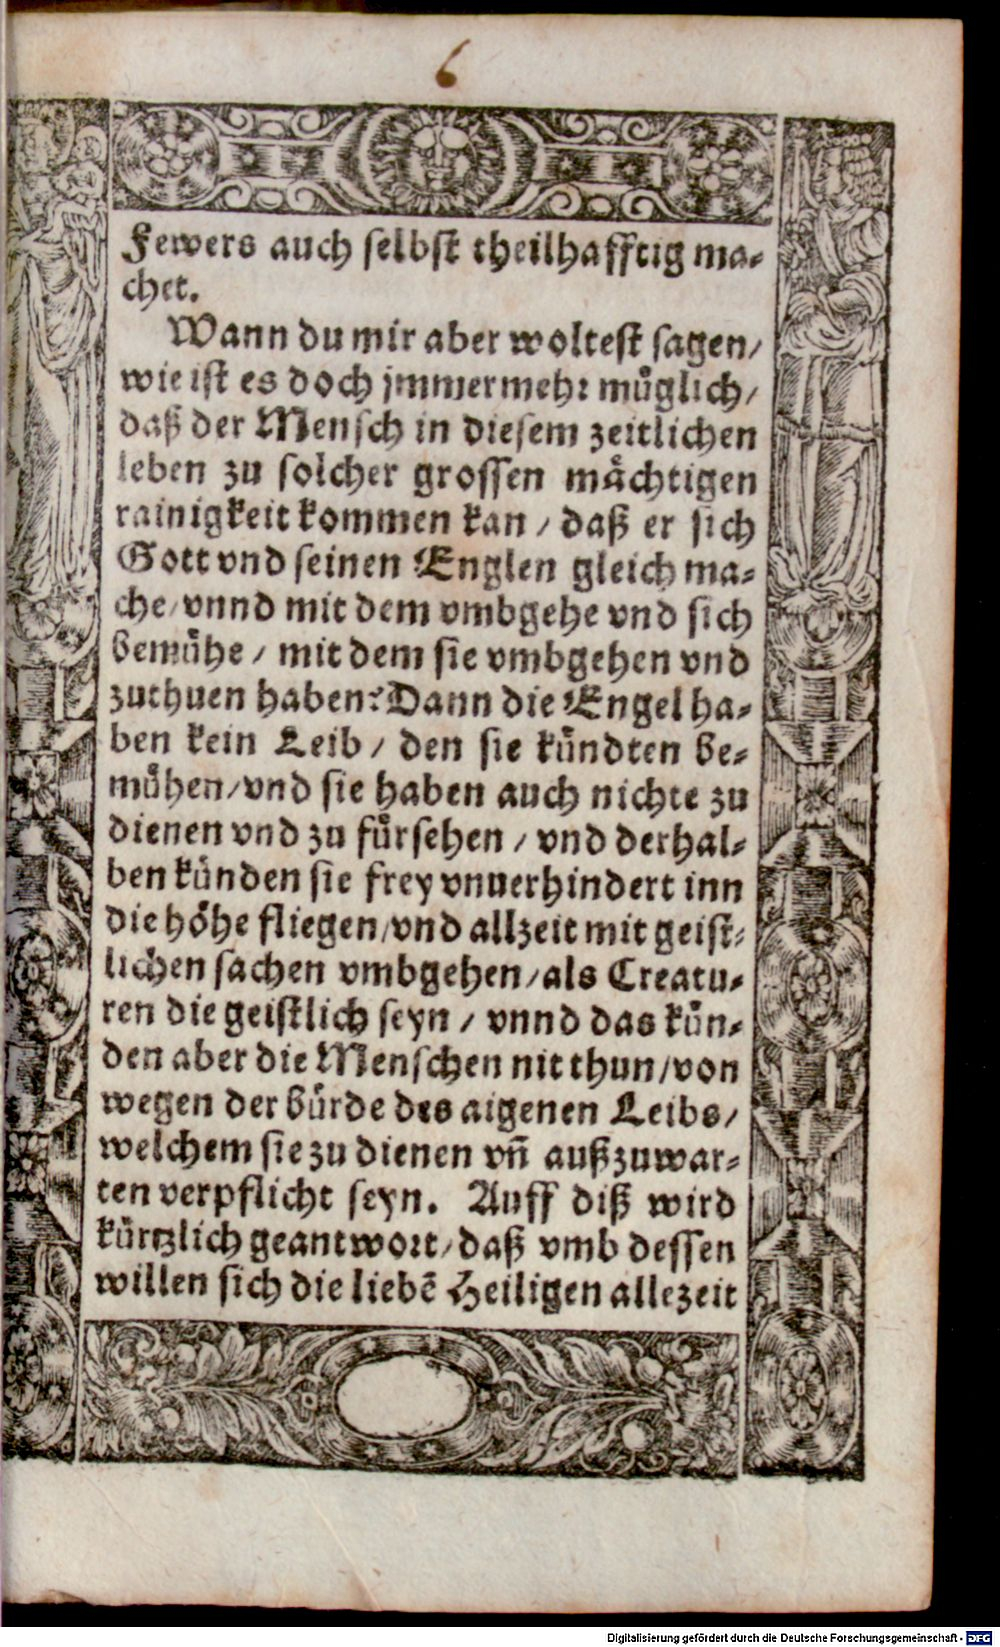 6
Fewers auch selbst theilhafftig ma-
chet.
Wann du mir aber woltest sagen/
wie ist es doch jmmermehr müglich/
daß der Mensch in diesem zeitlichen
leben zu solcher grossen mächtigen
rainigkeit kommen kan / daß er sich
Gott vnd seinen Englen gleich ma-
che/vnnd mit dem vmbgehe vnd sich
bemühe / mit dem sie vmbgehen vnd
zuthuen haben? Dann die Engel ha-
ben kein Leib / den sie kündten be-
mühen/vnd sie haben auch nichte zu
dienen vnd zu fürsehen / vnd derhal-
ben künden sie frey vnuerhindert inn
die höhe fliegen/vnd allzeit mit geist-
lichen sachen vmbgehen/als Creatu-
ren die geistlich seyn / vnnd das kün-
den aber die Menschen nit thun/von
wegen der bürde des aigenen Leibs/
welchem sie zu dienen vn̄ außzuwar-
ten verpflicht seyn. Auff diß wird
kürtzlich geantwort/daß vmb dessen
willen sich die liebē Heiligen allezeit
Digitalisierung gefördert durch die Deutsche Forschungsgemeinschaft - DFG